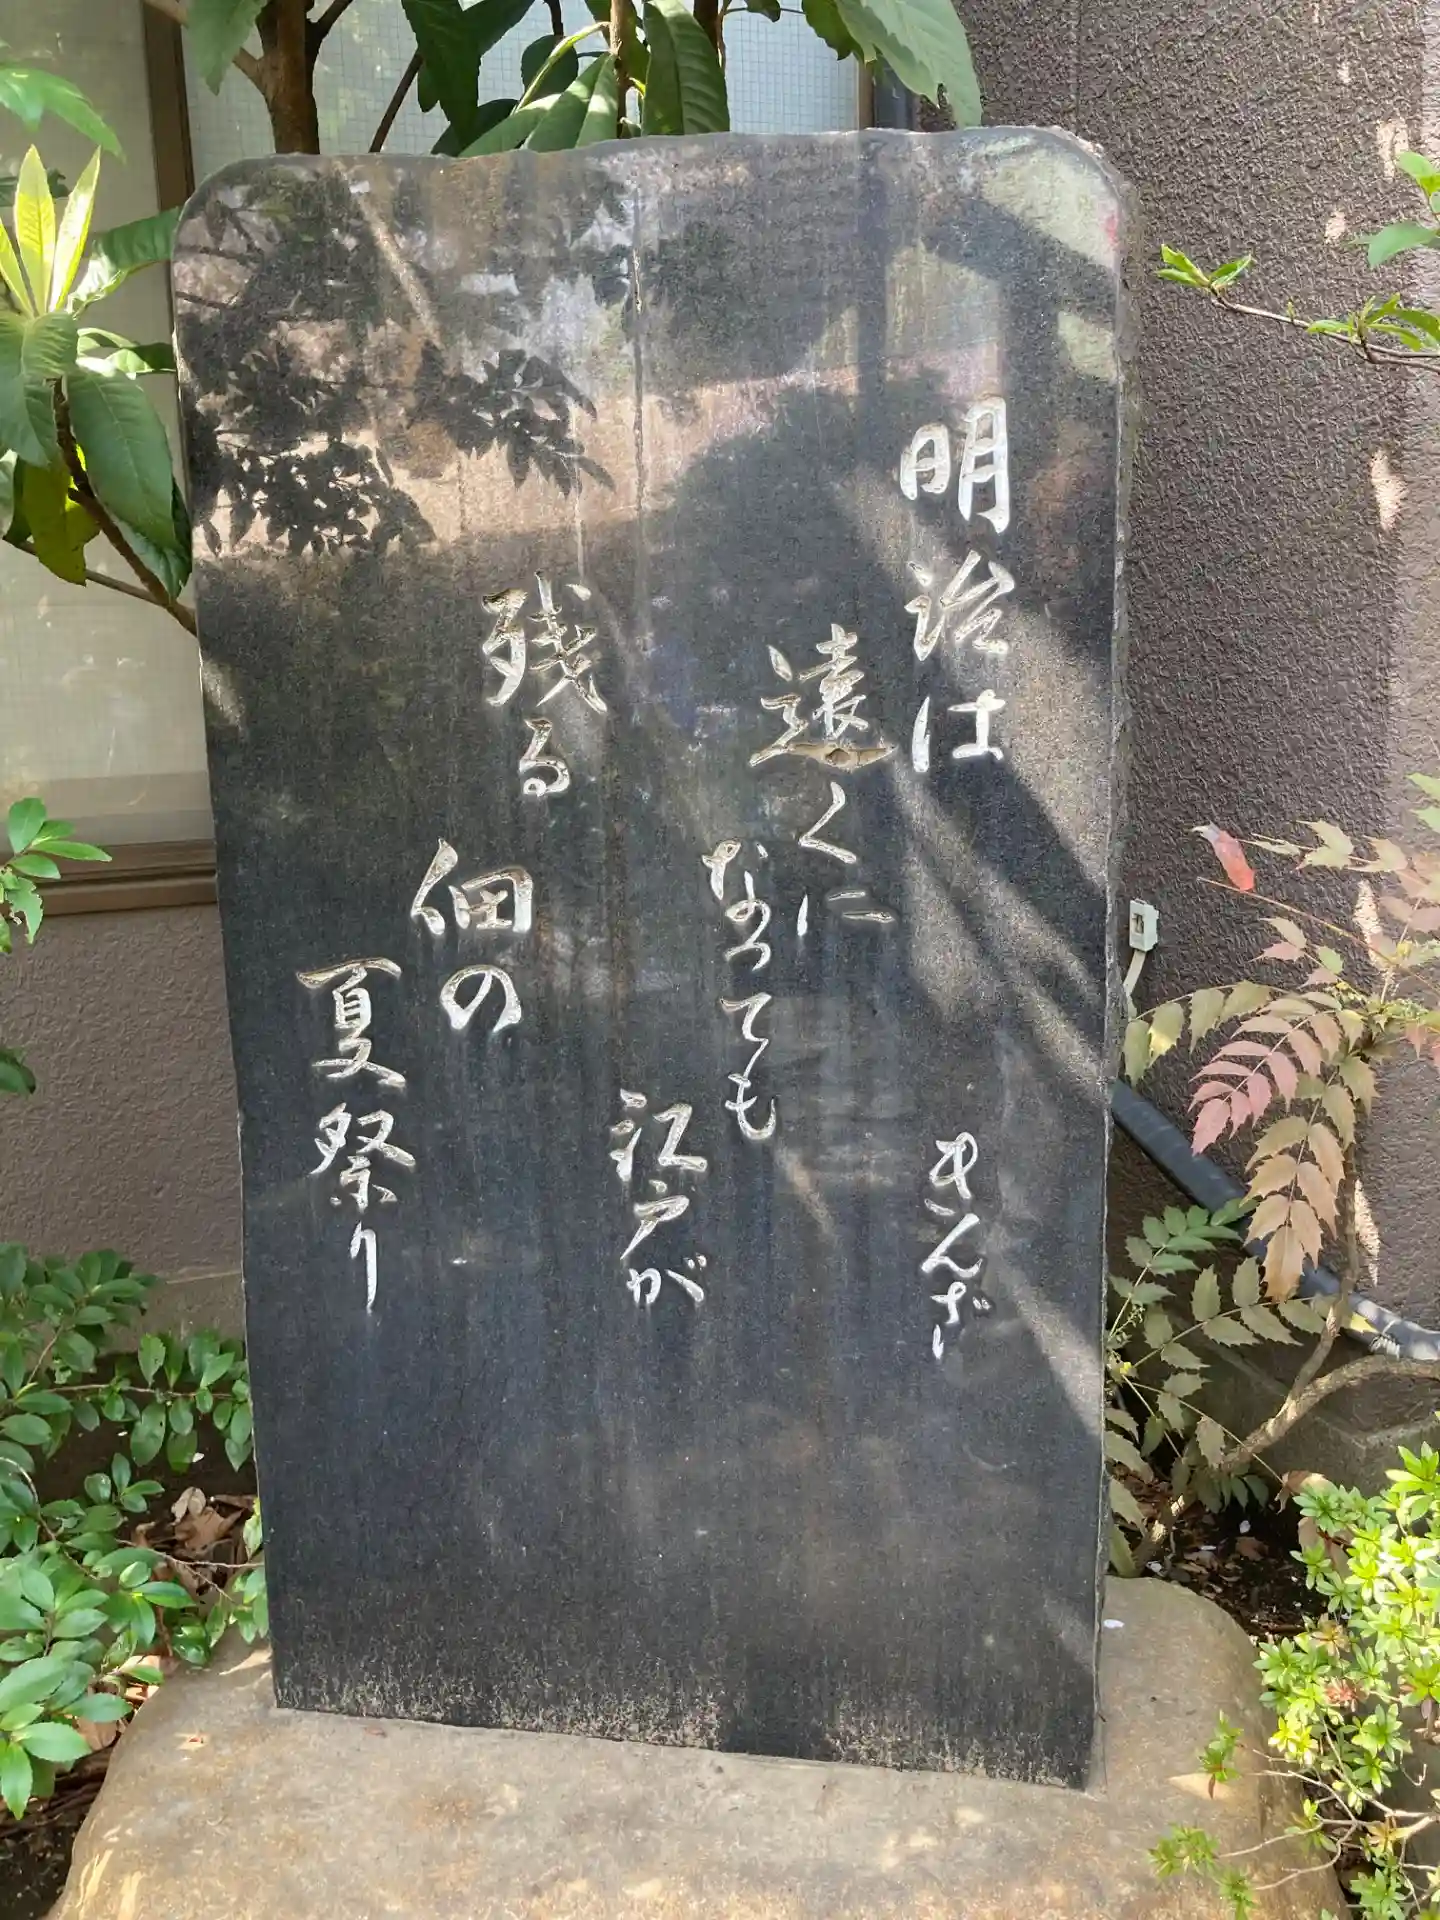 明治は
遠くに
なっても
江戸が
残る
佃の
夏祭り
きんざい